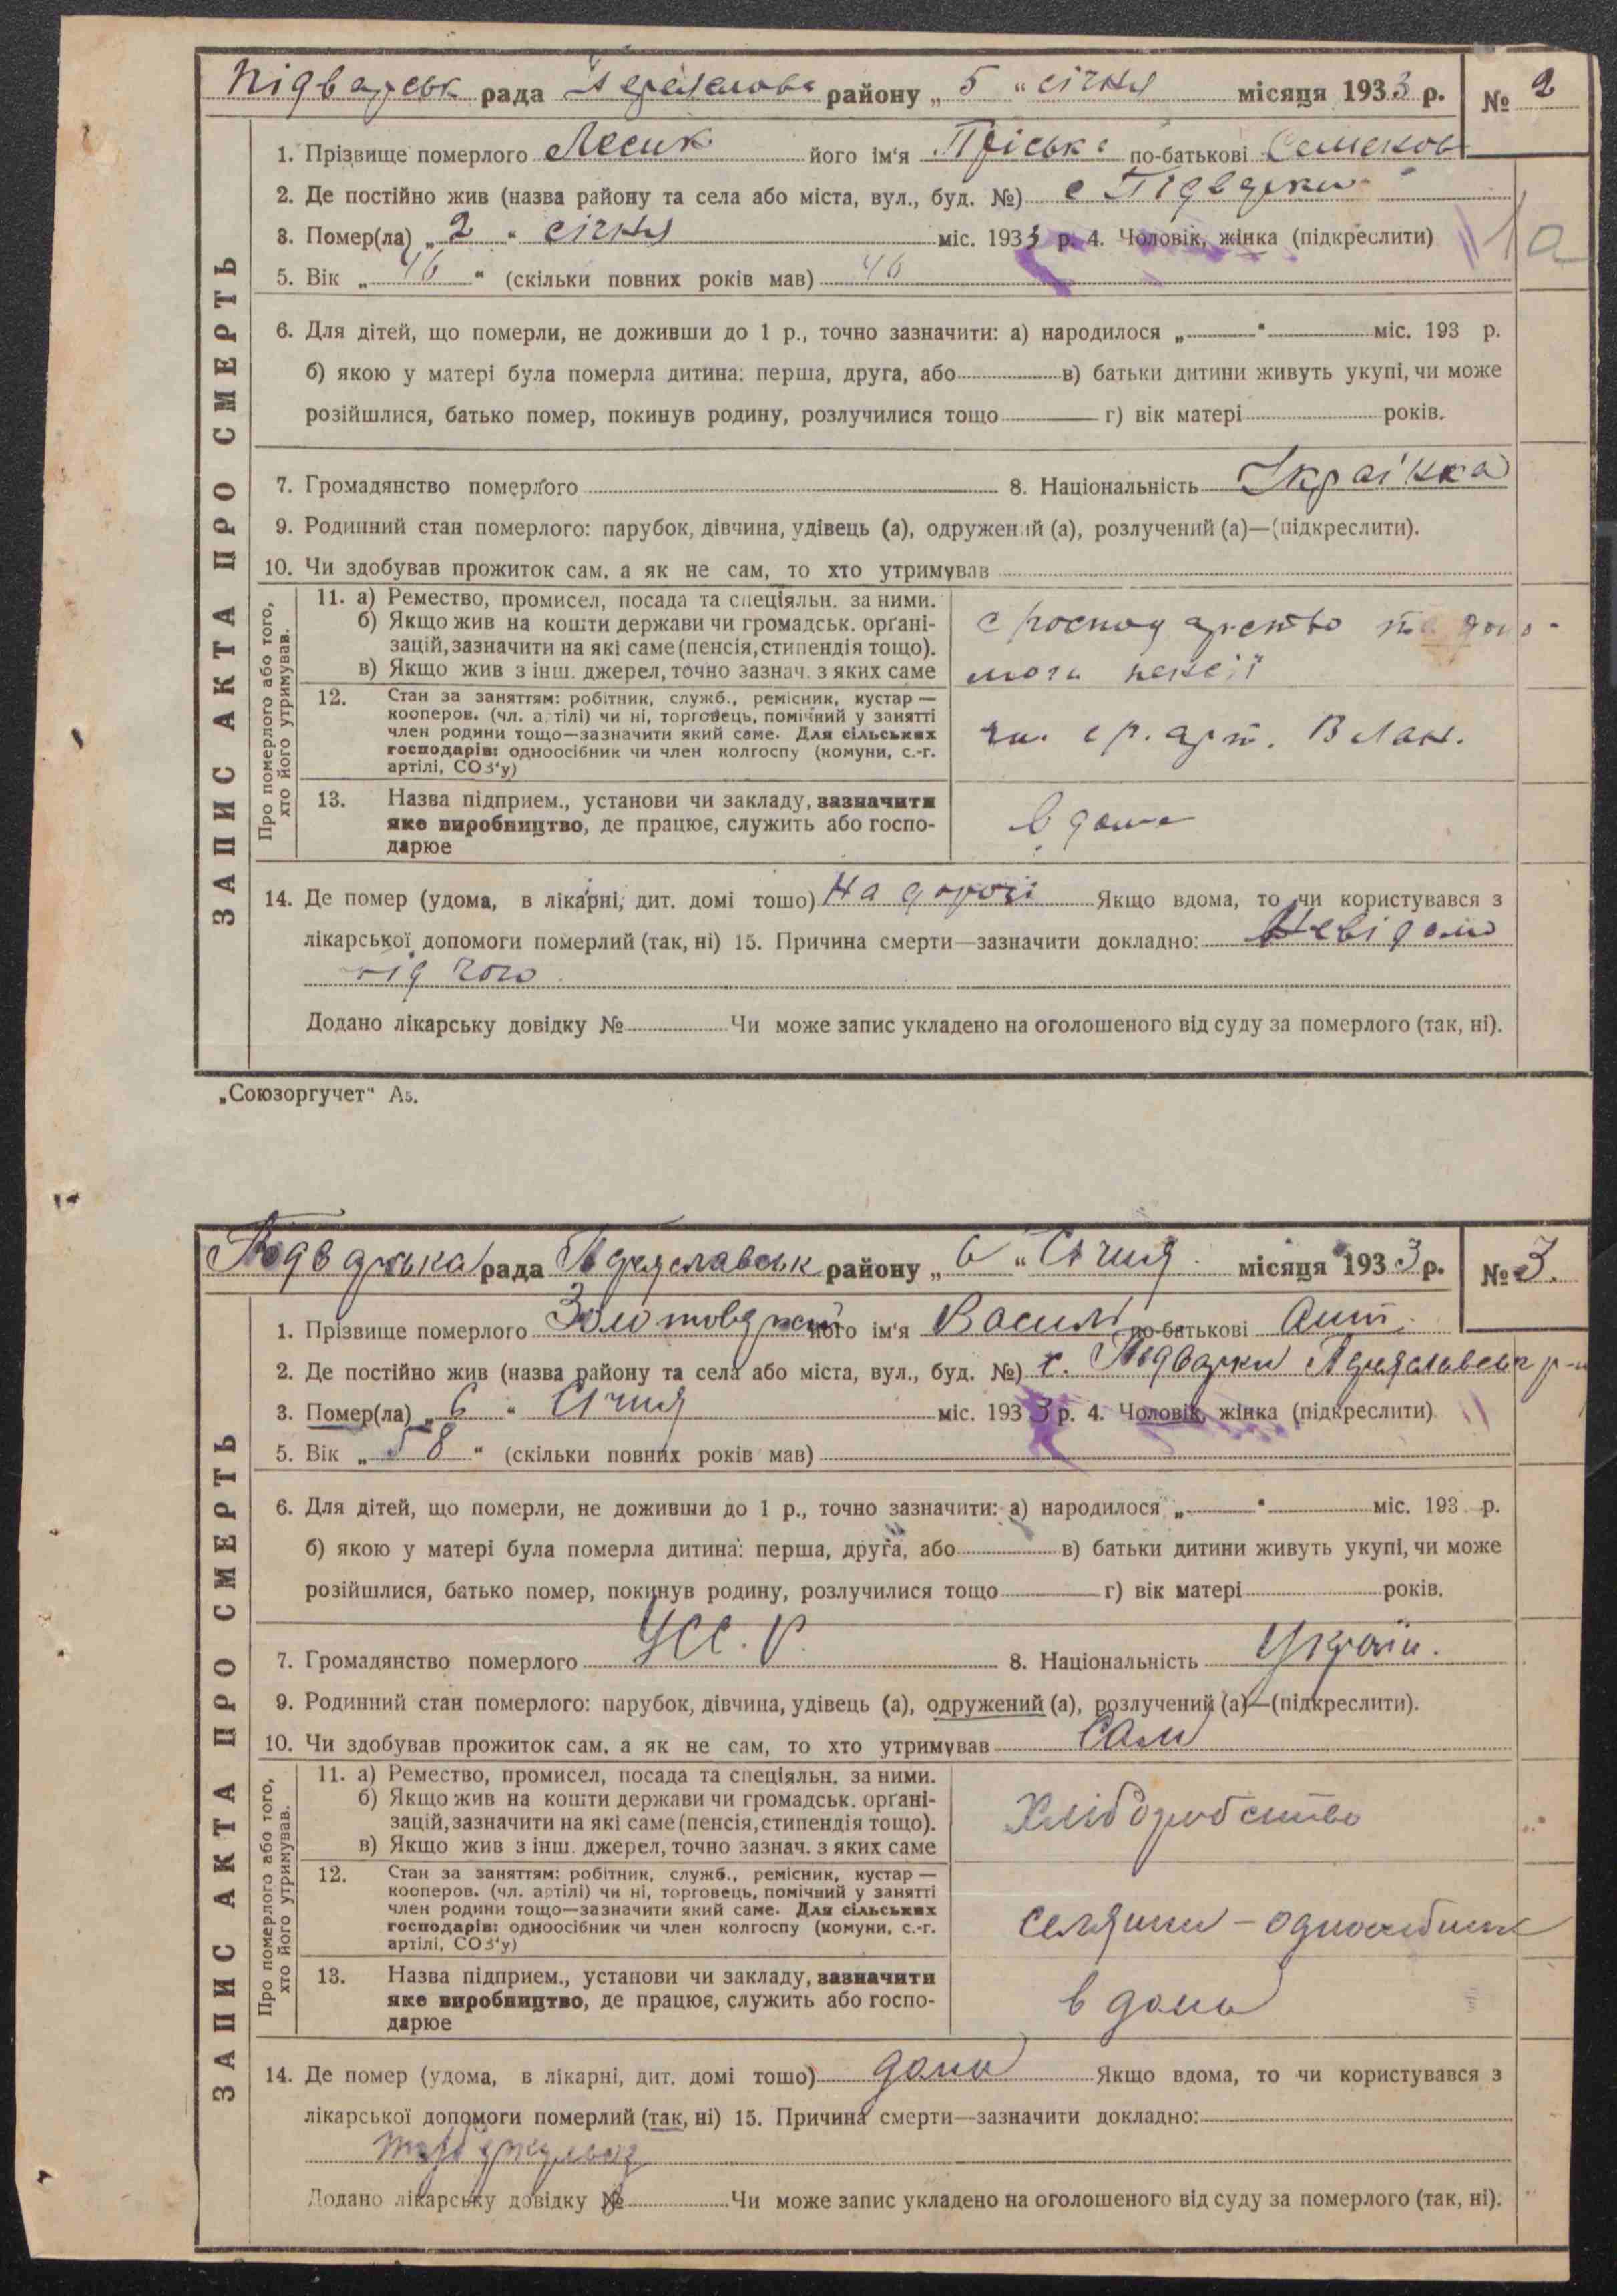 Підварськ рада Переяславс району „5“ січня місяця 1933 р. № 2
1. Прізвище померлого Лесик його ім'я Пріська по-батькові Семенов
2. Де постійно жив (назва району та села або міста, вул., буд. №) с Підварки
3. Помер(ла) „2“ січня міс. 1933 р. 4. Чоловік, жінка (підкреслити) 1а
5. Вік „46“ (скільки повних років мав) 46
6. Для дітей, що померли, не доживши до 1 р., точно зазначити: а) народилося „ “ міс. 193 р.
б) якою у матері була померла дитина: перша, друга, або в) батьки дитини живуть укупі, чи може
розійшлися, батько помер, покинув родину, розлучилися тощо г) вік матері років.
7. Громадянство померлого 8. Національність Українка
9. Родинний стан померлого: парубок, дівчина, удівець (а), одружений (а), розлучений (а)—(підкреслити).
10. Чи здобував прожиток сам, а як не сам, то хто утримував
ЗАПИС АКТА ПРО СМЕРТЬ
Про померлого або того, хто його утримував.
11. а) Ремество, промисел, посада та спеціяльн. за ними.
б) Якщо жив на кошти держави чи громадськ. орґані-
зацій, зазначити на які саме (пенсія, стипендія тощо).
в) Якщо жив з інш. джерел, точно зазнач. з яких саме
с господарство та допо-
моги пенсії
12. Стан за заняттям: робітник, служб., ремісник, кустар —
кооперов. (чл. артілі) чи ні, торговець, помічний у занятті
член родини тощо—зазначити який саме. Для сільських
господарів: одноосібник чи член колгоспу (комуни, с.-г.
артілі, СОЗ'у)
чл. с г. арт.
13. Назва підприєм., установи чи закладу, зазначити
яке виробництво, де працює, служить або госпо-
дарює
в дома
14. Де помер (удома, в лікарні, дит. домі тощо) На дорозі Якщо вдома, то чи користувався з
лікарської допомоги померлий (так, ні) 15. Причина смерти—зазначити докладно: Невідомо
від чого
Додано лікарську довідку № Чи може запис укладено на оголошеного від суду за померлого (так, ні).
„Союзоргучет“ А5.
Підварська рада Переяславськ району „6“ Січня місяця 1933 р. № 3.
1. Прізвище померлого його ім'я Василь по-батькові Ант.
2. Де постійно жив (назва району та села або міста, вул., буд. №) с. Підварки Переяславськ р-н
3. Помер(ла) „6“ Січня міс. 1933 р. 4. Чоловік, жінка (підкреслити)
5. Вік „58“ (скільки повних років мав)
6. Для дітей, що померли, не доживши до 1 р., точно зазначити: а) народилося „ “ міс. 193 р.
б) якою у матері була померла дитина: перша, друга, або в) батьки дитини живуть укупі, чи може
розійшлися, батько помер, покинув родину, розлучилися тощо г) вік матері років.
7. Громадянство померлого УСС.Р. 8. Національність Україн.
9. Родинний стан померлого: парубок, дівчина, удівець (а), одружений (а), розлучений (а)—(підкреслити).
10. Чи здобував прожиток сам, а як не сам, то хто утримував Сам
ЗАПИС АКТА ПРО СМЕРТЬ
Про померлого або того, хто його утримував.
11. а) Ремество, промисел, посада та спеціяльн. за ними.
б) Якщо жив на кошти держави чи громадськ. орґані-
зацій, зазначити на які саме (пенсія, стипендія тощо).
в) Якщо жив з інш. джерел, точно зазнач. з яких саме
Хліборобство
12. Стан за заняттям: робітник, служб., ремісник, кустар —
кооперов. (чл. артілі) чи ні, торговець, помічний у занятті
член родини тощо—зазначити який саме. Для сільських
господарів: одноосібник чи член колгоспу (комуни, с.-г.
артілі, СОЗ'у)
селянин – одноосібник
13. Назва підприєм., установи чи закладу, зазначити
яке виробництво, де працює, служить або госпо-
дарює
в дома
14. Де помер (удома, в лікарні, дит. домі тощо) дома Якщо вдома, то чи користувався з
лікарської допомоги померлий (так, ні) 15. Причина смерти—зазначити докладно:
туберкульоз
Додано лікарську довідку № Чи може запис укладено на оголошеного від суду за померлого (так, ні).